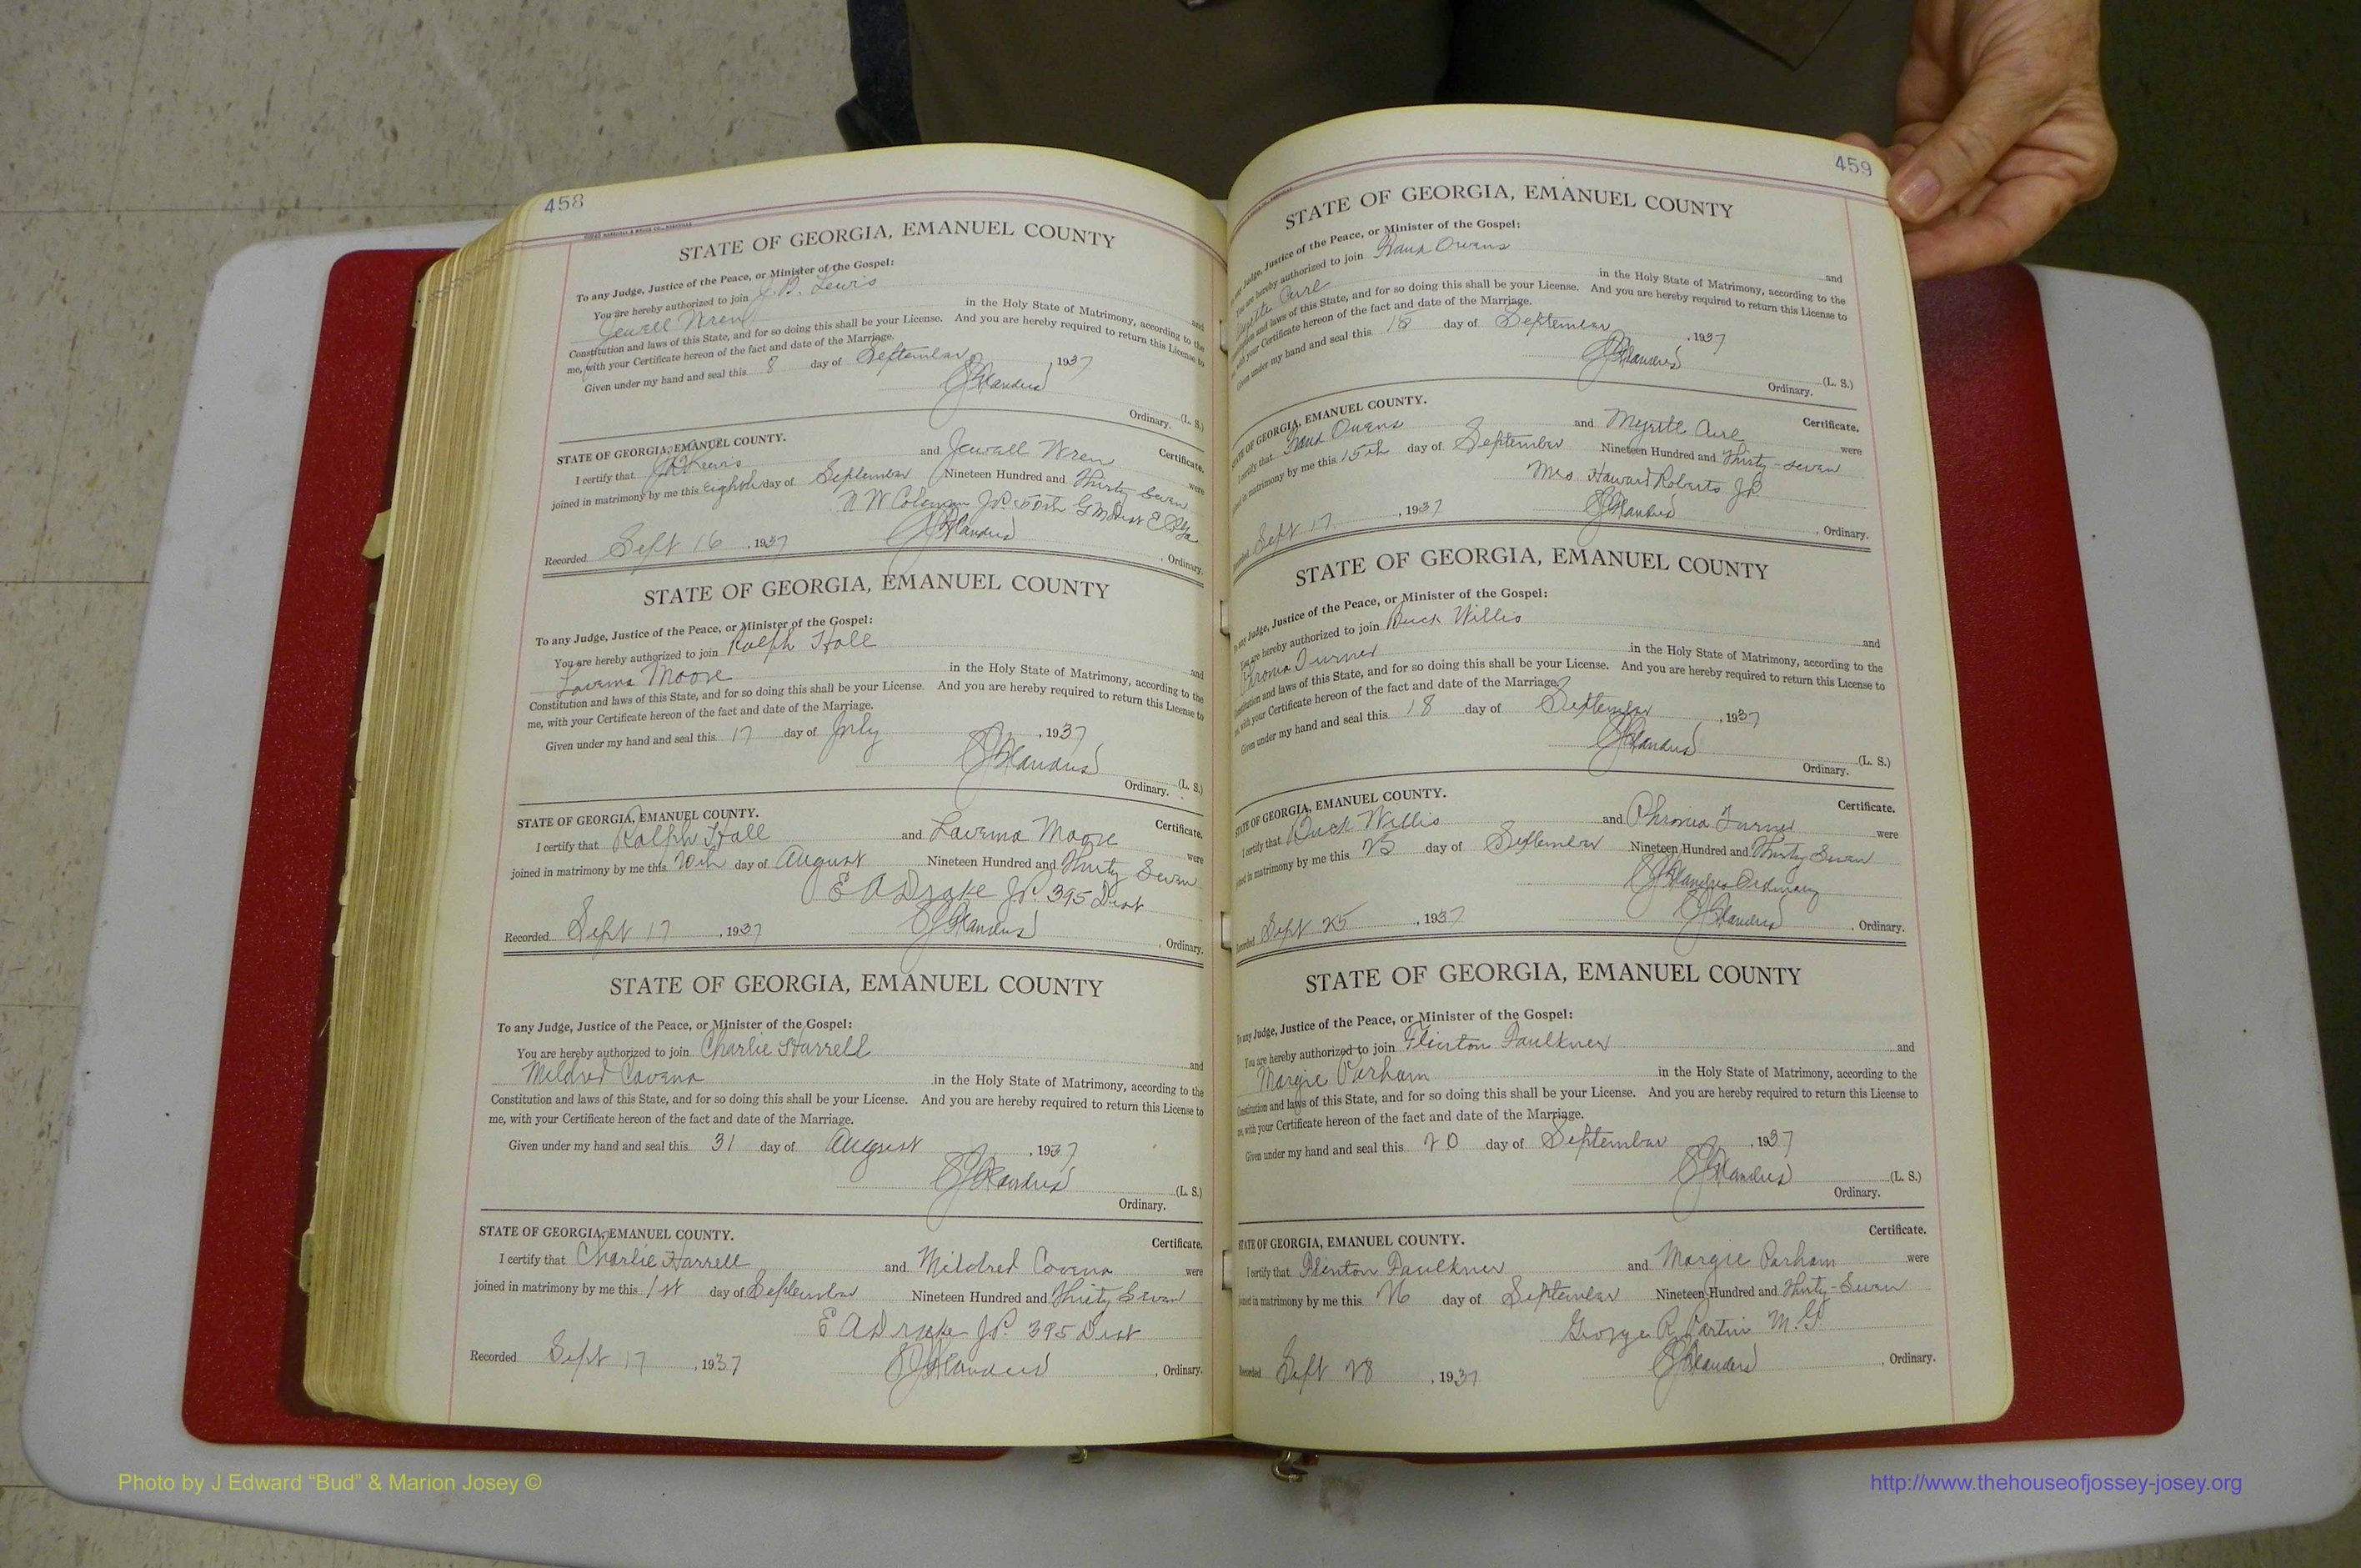 458
STATE OF GEORGIA, EMANUEL COUNTY
To any Judge, Justice of the Peace, or Minister of the Gospel:
You are hereby authorized to join J. B. Lewis and
Jewell Wren in the Holy State of Matrimony, according to the
Constitution and laws of this State, and for so doing this shall be your License. And you are hereby required to return this License to
me, with your Certificate hereon of the fact and date of the Marriage.
Given under my hand and seal this 8 day of September, 1937
(L. S.)
Ordinary.
STATE OF GEORGIA, EMANUEL COUNTY. Certificate.
I certify that Lewis and Jewell Wren were
joined in matrimony by me this Eighth day of September Nineteen Hundred and Thirty Seven
N W Coleman J.P.
Recorded Sept 16, 1937, Ordinary.
STATE OF GEORGIA, EMANUEL COUNTY
To any Judge, Justice of the Peace, or Minister of the Gospel:
You are hereby authorized to join Ralph Hall and
Laverna Moore in the Holy State of Matrimony, according to the
Constitution and laws of this State, and for so doing this shall be your License. And you are hereby required to return this License to
me, with your Certificate hereon of the fact and date of the Marriage.
Given under my hand and seal this 17 day of July, 1937
(L. S.)
Ordinary.
STATE OF GEORGIA, EMANUEL COUNTY. Certificate.
I certify that Ralph Hall and Laverna Moore were
joined in matrimony by me this day of August Nineteen Hundred and Thirty Seven
E A Drake J.P. 395 Dist
Recorded Sept 17, 1937, Ordinary.
STATE OF GEORGIA, EMANUEL COUNTY
To any Judge, Justice of the Peace, or Minister of the Gospel:
You are hereby authorized to join Charlie Harrell and
Mildred Covena in the Holy State of Matrimony, according to the
Constitution and laws of this State, and for so doing this shall be your License. And you are hereby required to return this License to
me, with your Certificate hereon of the fact and date of the Marriage.
Given under my hand and seal this 31 day of August, 1937
(L. S.)
Ordinary.
STATE OF GEORGIA, EMANUEL COUNTY. Certificate.
I certify that Charlie Harrell and Mildred Covena were
joined in matrimony by me this 1st day of September Nineteen Hundred and Thirty Seven
E A Drake J.P. 395 Dist
Recorded Sept 17, 1937, Ordinary.
459
STATE OF GEORGIA, EMANUEL COUNTY
any Judge, Justice of the Peace, or Minister of the Gospel:
You are hereby authorized to join Owens and
in the Holy State of Matrimony, according to the
and laws of this State, and for so doing this shall be your License. And you are hereby required to return this License to
with your Certificate hereon of the fact and date of the Marriage.
Given under my hand and seal this day of September, 1937
(L. S.)
Ordinary.
STATE OF GEORGIA, EMANUEL COUNTY. Certificate.
I certify that Owens and Myrtle were
in matrimony by me this 15th day of September Nineteen Hundred and Thirty-seven
Mrs Howard Roberts J.P.
Recorded Sept 17, 1937, Ordinary.
STATE OF GEORGIA, EMANUEL COUNTY
To any Judge, Justice of the Peace, or Minister of the Gospel:
You are hereby authorized to join Buck Willis and
Phronia Turner in the Holy State of Matrimony, according to the
Constitution and laws of this State, and for so doing this shall be your License. And you are hereby required to return this License to
with your Certificate hereon of the fact and date of the Marriage.
Given under my hand and seal this 18 day of September, 1937
(L. S.)
Ordinary.
STATE OF GEORGIA, EMANUEL COUNTY. Certificate.
I certify that Buck Willis and Phronia Turner were
joined in matrimony by me this 25 day of September Nineteen Hundred and Thirty Seven
Ordinary
Recorded Sept 25, 1937, Ordinary.
STATE OF GEORGIA, EMANUEL COUNTY
To any Judge, Justice of the Peace, or Minister of the Gospel:
You are hereby authorized to join Flinton Faulkner and
Margie Parham in the Holy State of Matrimony, according to the
Constitution and laws of this State, and for so doing this shall be your License. And you are hereby required to return this License to
me, with your Certificate hereon of the fact and date of the Marriage.
Given under my hand and seal this 20 day of September, 1937
(L. S.)
Ordinary.
STATE OF GEORGIA, EMANUEL COUNTY. Certificate.
I certify that Flinton Faulkner and Margie Parham were
joined in matrimony by me this 26 day of September Nineteen Hundred and Thirty-Seven
George R. Partin M.G.
Recorded Sept 28, 1937, Ordinary.
Photo by J Edward “Bud” & Marion Josey ©
http://www.thehouseofjossey-josey.org